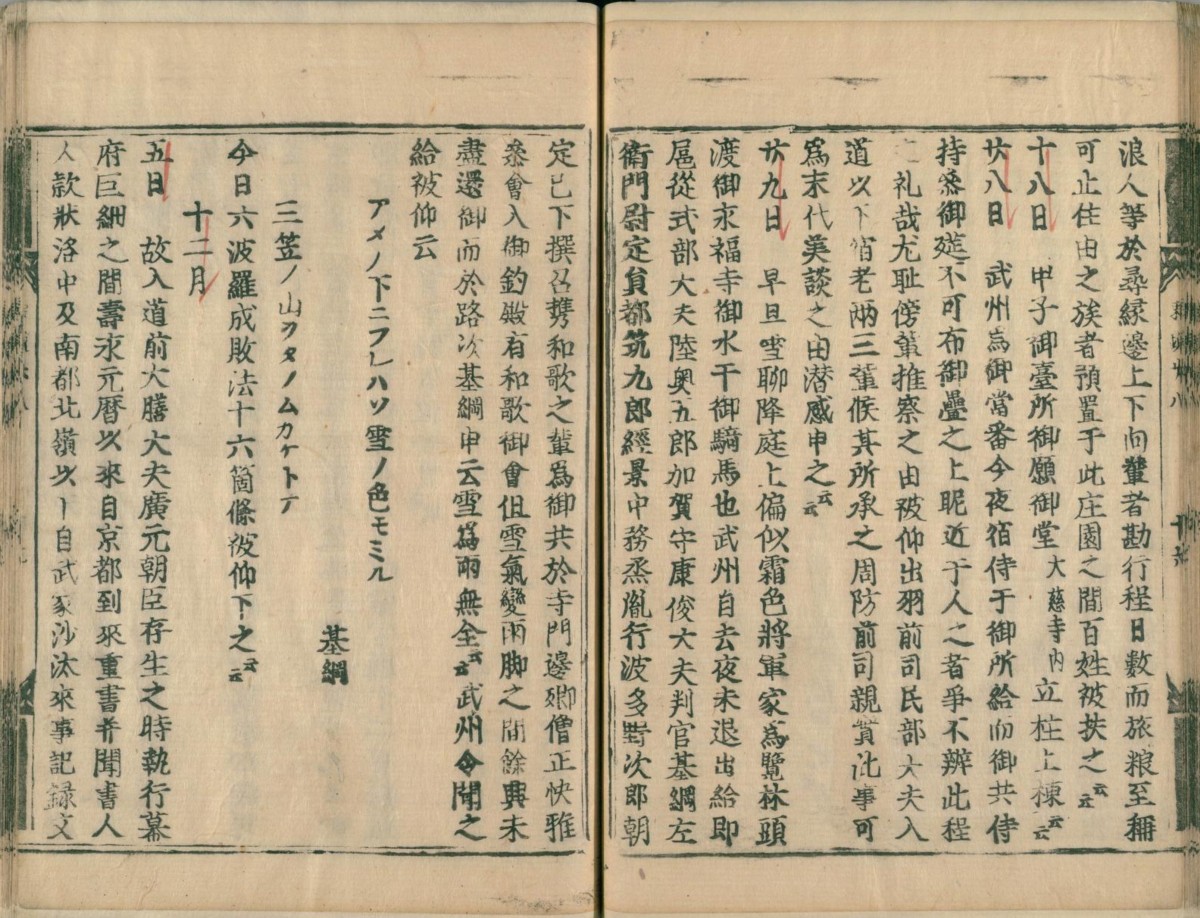 浪人等於尋縁邊上下向輩者勘行程日數而旅粮至稱
可止住由之族者預置于此庄園之間百姓被扶之云云
十八日 甲子御臺所御願御堂大慈寺内立柱上棟云云
廿八日 武州爲御當番今夜宿侍于御所給而御共侍
持參御莚不可布御疊之上昵近于人之者爭不辨此程
之礼哉尤耻傍輩推察之由被仰出羽前司民部大夫入
道以下宿老兩三輩候其所承之周防前司親實此事可
爲末代美談之由潜感申之云云
廿九日 早旦雪聊降庭上偏似霜色將軍家爲覽林頭
渡御永福寺御水干御騎馬也武州自去夜未退出給即
扈從式部大夫陸奥五郎加賀守康俊大夫判官基綱左
衛門尉定員都筑九郎經景中務丞胤行波多野次郎朝
定已下撰召携和歌之輩爲御共於寺門邊卿僧正快雅
參會入御釣殿有和歌御會但雪氣變雨脚之間餘興未
盡還御而於路次基綱申云雪爲雨無全云云武州令聞之
給被仰云
アメノ下ニフレハソ雪ノ色モミル
三笠ノ山ヲタノムカケトテ
基綱
今日六波羅成敗法十六箇條被仰下之云云
十二月
五日 故入道前大膳大夫廣元朝臣存生之時執行幕
府巨細之間壽永元暦以來自京都到來重書并聞書人
人款状洛中及南都北嶺以下自武家沙汰來事記録文